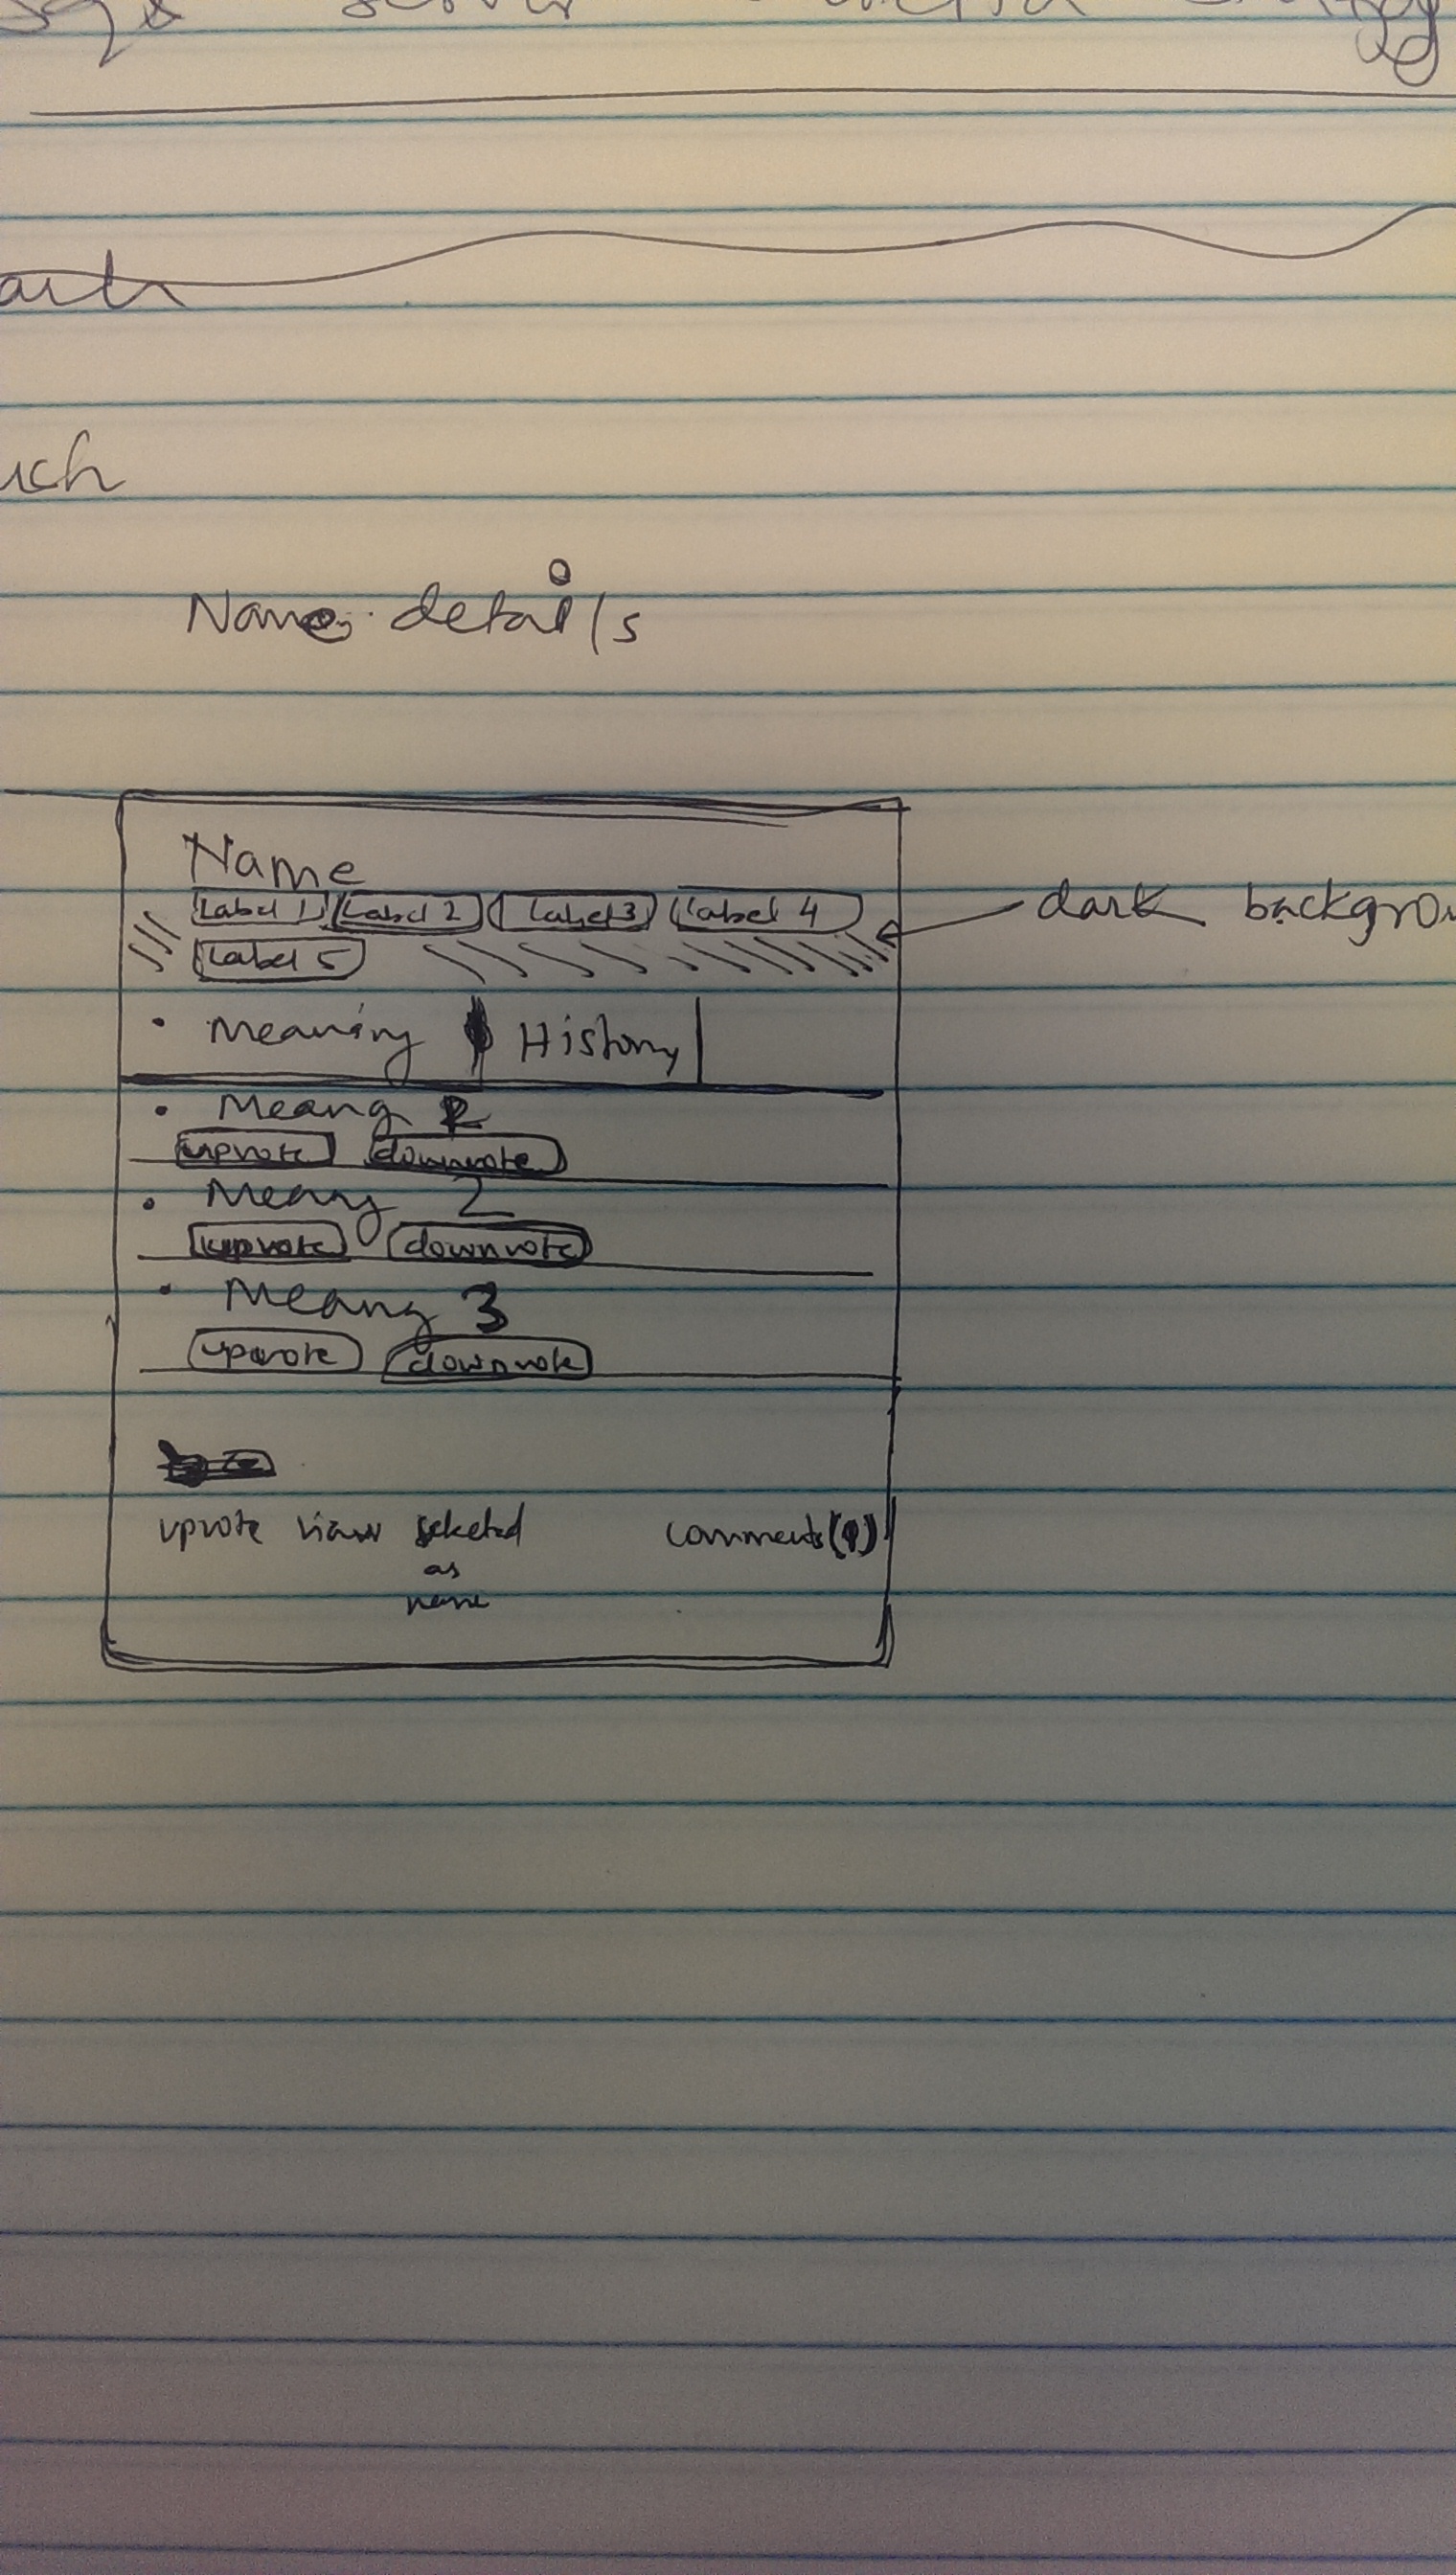 Name details
Name
Label 1 Label 2 Label 3 Label 4
dark backgrou
Label 5
• Meaning History
• Meang
upvote downvote
• Meang 2
upvote downvote
• Meang 3
upvote downvote
upvote view selected comments(9)
as
name